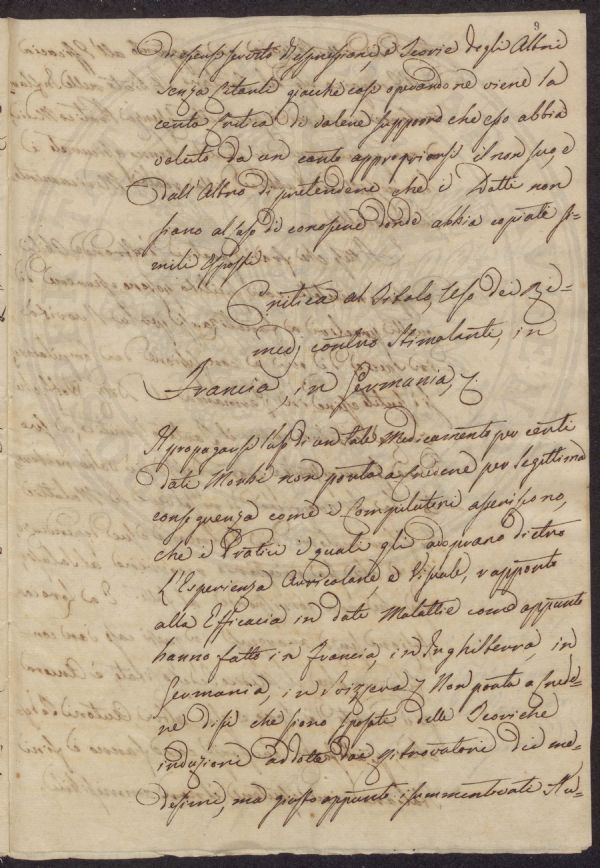 9
di spesso servirsi d'espressioni, e Teorie degli Altri
senza citarli giacché così operando ne viene la
certa Critica di valere supporre che esso abbia
voluto da un canto appropriarsi il non suo, e
dall'Altro di pretendere che i Dotti non
siano al caso di conoscere donde abbia copiati si=
mili Esposti.
Critica al Titolo, Uso dei Ri=
medj contro Stimolanti, in
Francia, in Germania,
Il propagarsi l'uso di un tale Medicamento per certi
dati Morbi non porta a credere per legittima
conseguenza come i Compilatori asseriscono,
che i Pratici i quali gli adoprano dietro
L'Esperienza Auricolare, e Visuale, rapporto
alla Efficacia in date Malattie come appunto
hanno fatto in Francia, in Inghilterra, in
Germania, in Svizzera Non porta a Crede=
re dissi che siano seguaci delle Teoriche
induzioni addotte dai ritrovatori dei me=
desimi, ma giusto appunto i summentovati